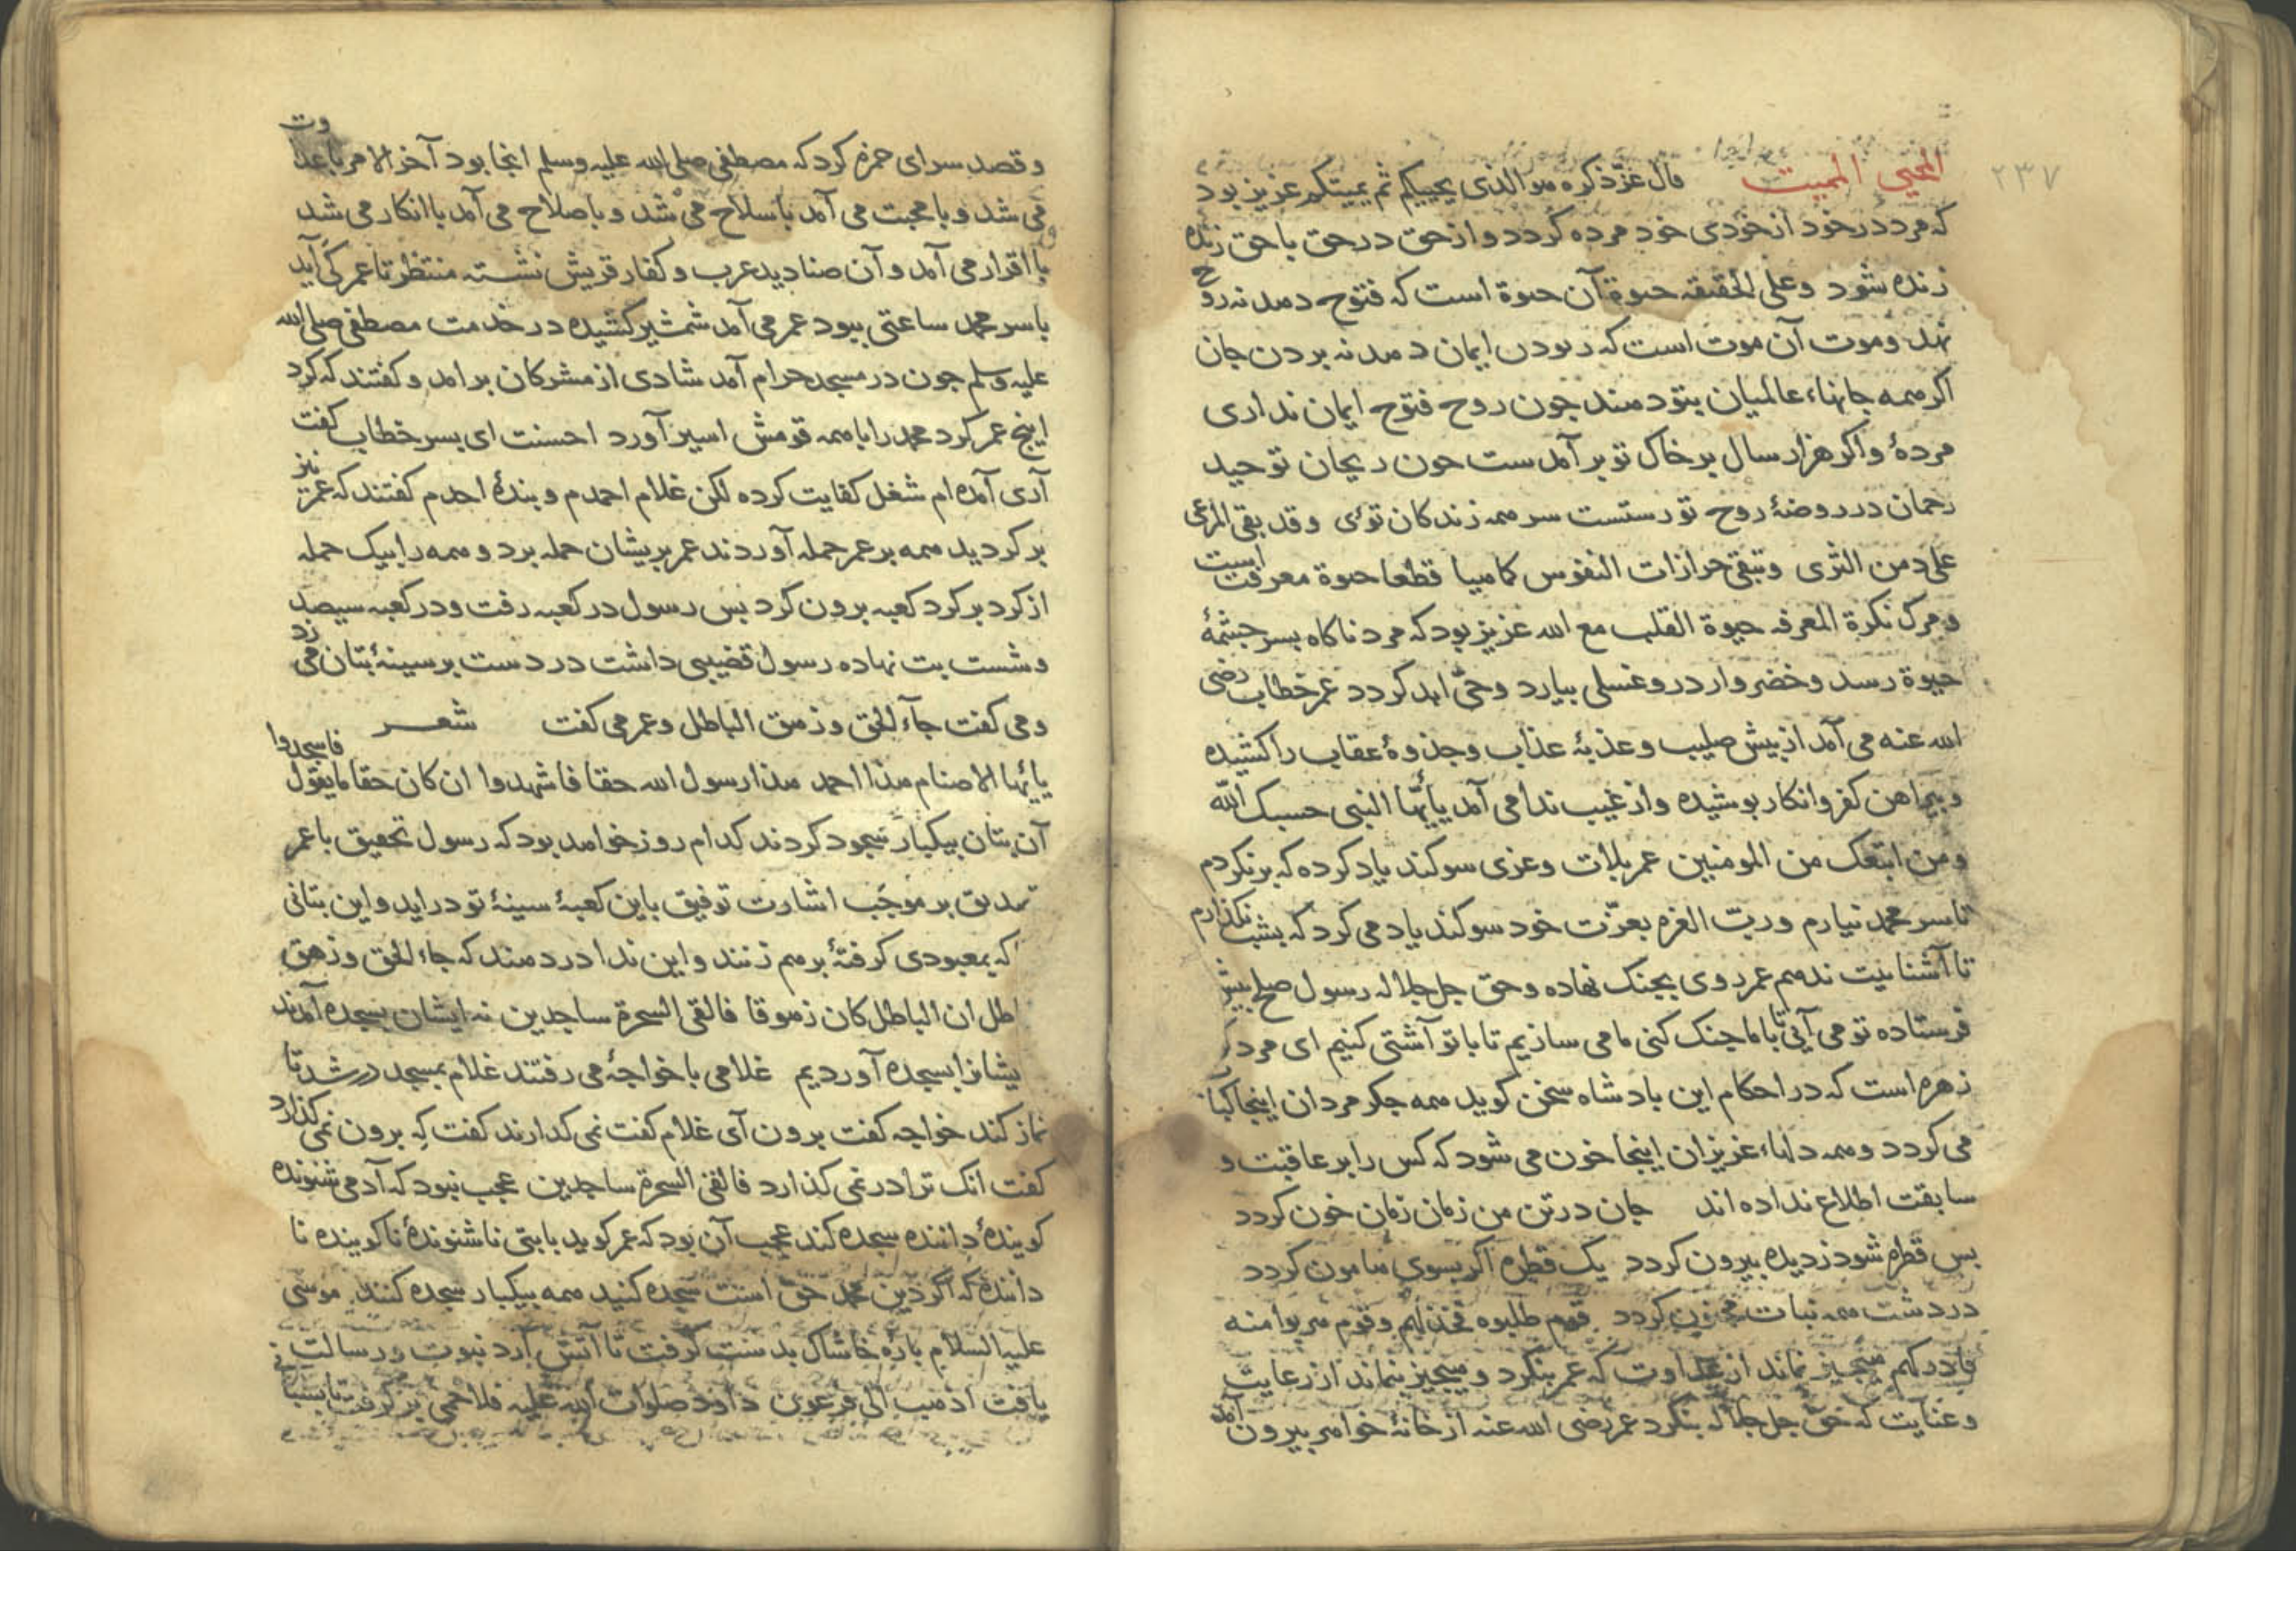 ٢٣٧
المحیی الممیت قال عزّ ذکره هو الذی یحییکم ثم یمیتکم عزیز بود
که مرد در خود از خودی خود مرده کردد و از حق در حق با حق زنده
زنده شود و علی الحقیقه حیوة آن حیوة است که فتوح دهد نه روح
نهد و موت آن موت است که ربودن ایمان دهد نه بردن جان
اکر همه جانهاء عالمیان بتو دهند جون روح فتوح ایمان نداری
مردهٔ و اکر هزار سال بر خاک تو بر آمدست جون ریحان توحید
رحمان در روضهٔ روح تو رستست سر همه زندکان توئی وقد یبقی المرعی
علی دمن الثری وتبقی حزازات النفوس کما هیا قطعا حیوة معرفت است
و مرک نکرة المعرفه حیوة القلب مع الله عزیز بود که مرد ناکاه بسر جشمهٔ
حیوة رسد و خضروار درو غسلی بیارد و حیّ ابد کردد عمر خطاب رضی
الله عنه می آمد از بیش صلیب و عذبهٔ عذاب و جذوهٔ عقاب را کشیده
و بیراهن کفر و انکار بوشیده و از غیب ندا می آمد یاأیّها النبی حسبک الله
ومن اتبعک من المومنین عمر بلات و عزی سوکند یاد کرده که برنکردم
تا سر محمد نیارم و ربّ العزه بعزّت خود سوکند یاد می کرد که بشب نکذارم
تا آشناییت ندهم عمر روی بجنک نهاده و حق جل جلاله رسول صلح بیش
فرستاده تو می آیی تا با ما جنک کنی ما می سازیم تا با تو آشتی کنیم ای مرد کر
زهره است که در احکام این بادشاه سخن کوید همه جکر مردان اینجا کباب
می کردد و همه دلهاء عزیزان اینجا خون می شود که کس را بر عاقبت و
سابقت اطلاع نداده اند جان در تن من زمان زمان خون کردد
بس قطره شود ز دیده بیرون کردد یک قطره اکر بسوی هامون کردد
در دشت همه نبات کردد قوم طلبوه فخذلهم و قوم هربوا منه
فادرکهم هیجیز نماند از عداوت که عمر بنکرد و هیجیز بنماند از رعایت
و عنایت که حقّ جل جلاله بنکرد عمر رضی الله عنه از خانهٔ خواهر بیرون آمد
و قصد سرای حمزه کرد که مصطفی صلی الله علیه وسلم انجا بود آخر الامر با عداوت
می شد و با محبت می آمد با سلاح می شد و با صلاح می آمد با انکار می شد
با اقرار می آمد و آن صنادید عرب و کفار قریش نشسته منتظر تا عمر کی آید
با سر محمد ساعتی ببود عمر می آمد شمشیر کشیده در خدمت مصطفی صلی الله
علیه وسلم جون در مسجد حرام آمد شادی از مشرکان بر امد و کفتند که کرد
اینج عمر کرد محمد را با همه قومش اسیر آورد احسنت ای بسر خطاب کفت
آری آمده ام شغل کفایت کرده لکن غلام احمدم و بندهٔ احدم کفتند که عمر نیز
بر کردید همه بر عمر حمله آوردند عمر بریشان حمله برد و همه را بیک حمله
از کرد بر کرد کعبه برون کرد بس رسول در کعبه رفت و در کعبه سیصد
و شست بت نهاده رسول قضیبی داشت در دست بر سینهٔ بتان می زد
و می کفت جآء الحق و زهق الباطل و عمر می کفت شعر
یاأیها الاصنام هذا احمد هذا رسول الله حقا فاشهدوا ان کان حقا ما یقول فاسجدوا
آن بتان بیکبار سجود کردند کدام روز خواهد بود که رسول تحقیق با عمر
تصدیق بر موجب اشارت توفیق باین کعبهٔ سینهٔ تو در اید و این بتانی
که بمعبودی کرفتهٔ برهم زنند و این ندا در دهند که جاء الحق و زهق
الباطل ان الباطل کان زهوقا فالقی السحرة ساجدین نه ایشان بسجده آمدند
ایشانرا بسجده آوردیم غلامی با خواجهٔ می رفتند غلام بمسجد در شد تا
نماز کند خواجه کفت برون آی غلام کفت نمی کدارند کفت که برون نمی کذارد
کفت انک ترا در نمی کذارد فالقی السحرة ساجدین عجب نبود که آدمی شنونده
کویندهٔ داننده سجده کند عجب آن بود که عمر کوید با بتی ناشنوندهٔ ناکوینده نا
داننده که اکر دین محمد حقّ است سجده کنید همه بیکبار سجده کنند موسی
علیه السلام بارهٔ خاشاک بدست کرفت تا آتش آرد نبوت و رسالت
یافت اذهب الی فرعون داود صلوات الله علیه فلاخمی بر کرفت